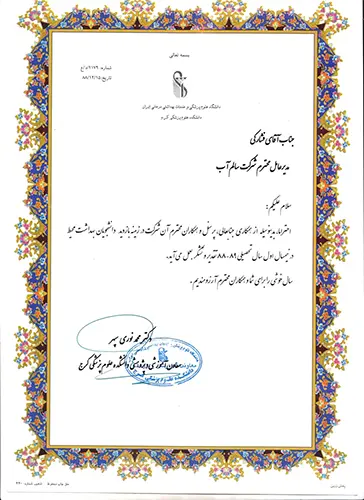 بسمه تعالی
تاریخ: ۸۸/۱۲/۱۵
دانشگاه علوم پزشکی و خدمات بهداشتی درمانی ایران
دانشکده علوم پزشکی کرج
جناب آقای فشارکی
مدیرعامل محترم شرکت سالم آب
سلام علیکم؛
احتراما، بدینوسیله از همکاری جنابعالی، پرسنل و همکاران محترم آن شرکت در زمینه بازدید دانشجویان بهداشت محیط
در نیمسال اول سال تحصیلی ۸۹-۸۸ تقدیر و تشکر بعمل می‌آید.
سال خوشی را برای شما و همکاران محترم آرزومندیم.
دکتر محمد نوری سپهر
معاون آموزشی و پژوهشی دانشکده علوم پزشکی کرج